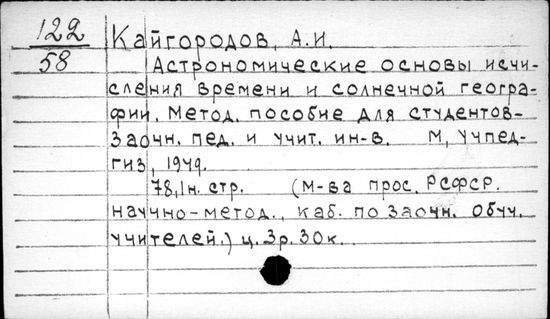 122
58
Кайгородов, А.И.
Астрономические основы исчи-
сления времени и солнечной геогра-
фии. Метод. пособие для студентов-
заочн. пед. и учит. ин-в. М, Учпед-
гиз, 1949.
78,1н. стр. (М-ва прос. РСФСР.
научно-метод., каб. по заочн. обуч.
учителей.) ц. 3р. 30к.